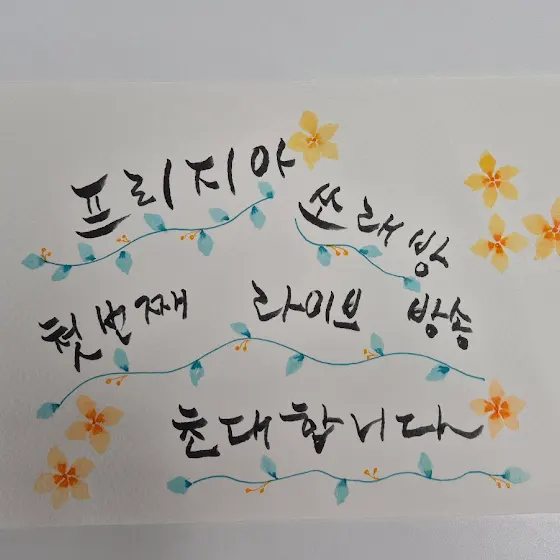 프리지아
쏘래방
첫번째 라이브 방송
초대합니다